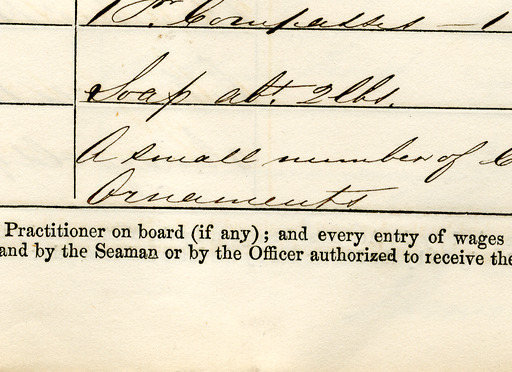 1 Pr. Compasses — 1
Soap abt. 2lbs.
A small number of C
Ornaments
Practitioner on board (if any); and every entry of wages
and by the Seaman or by the Officer authorized to receive the